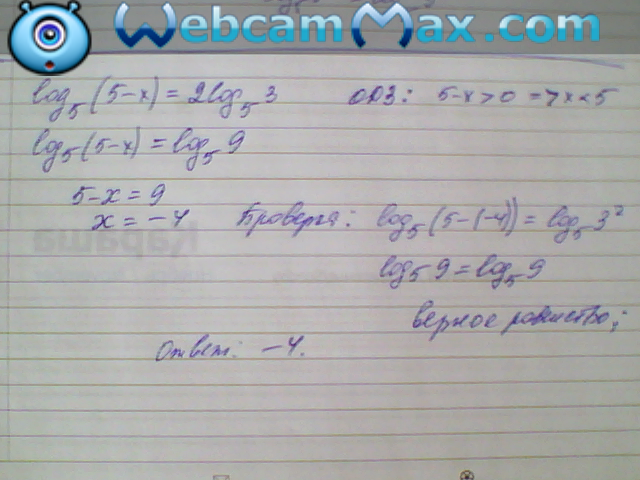 WebcamMax.com
log₅(5-x) = 2log₅3 ОДЗ: 5-x>0 => x<5
log₅(5-x) = log₅9
5-x = 9
x = -4 Проверка: log₅(5-(-4)) = log₅3²
log₅9 = log₅9
верное равенство;
Ответ: -4.